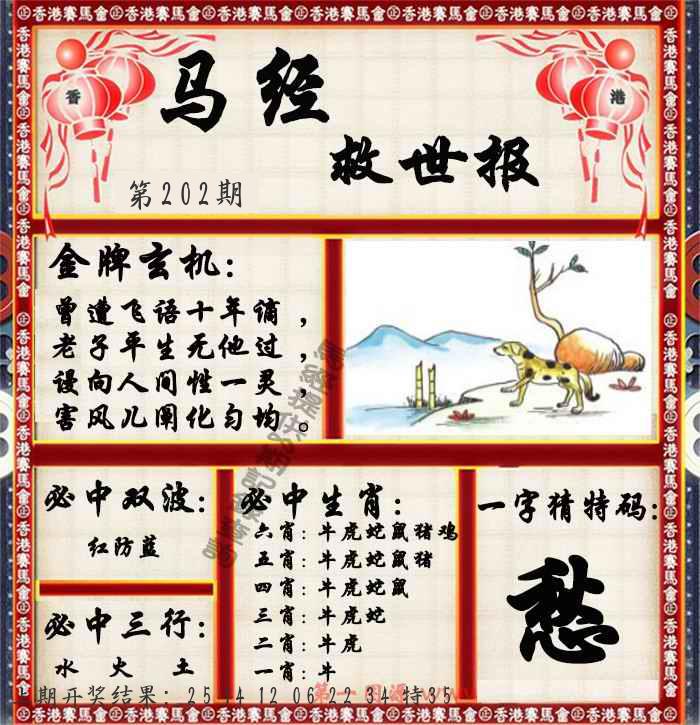 香港賽馬會
香 港
马经
救世报
第202期
金牌玄机:
曾遭飞语十年谪，
老子平生无他过，
谩向人间性一灵，
害风儿阐化匀均。
必中双波:
红防蓝
必中三行:
水 火 土
必中生肖:
六肖: 牛虎蛇鼠猪鸡
五肖: 牛虎蛇鼠猪
四肖: 牛虎蛇鼠
三肖: 牛虎蛇
二肖: 牛虎
一肖: 牛
一字猜特码:
愁
期开奖结果: 25 44 12 06 22 34 特35